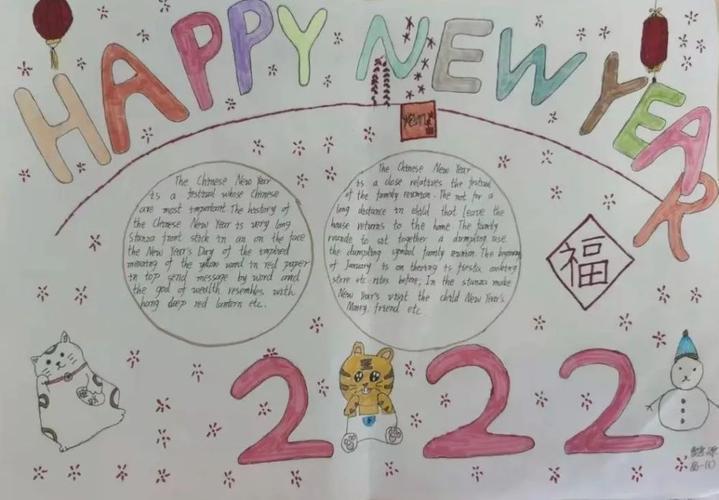 HAPPY NEW YEAR
The Chinese New Year
is a festival whose Chinese
are most important The history of
the Chinese New Year is very long
Stanza front stick in an on the face
the New Year's Day of the inspired
meaning of the yellow word in red paper
in top send message by word and
the god of wealth resembles with
hang deep red lantern etc.
The Chinese New Year
is a close relatives the festival
of the family reunion. The not for a
long distance in child that leave the
house returns to the home The family
rounds to sit together a dumpling use
the dumpling symbol family reunion The beginning
of January is on
etc rites before, In the stanza make
New Year's visit the child New Year's
friend etc
福
2022